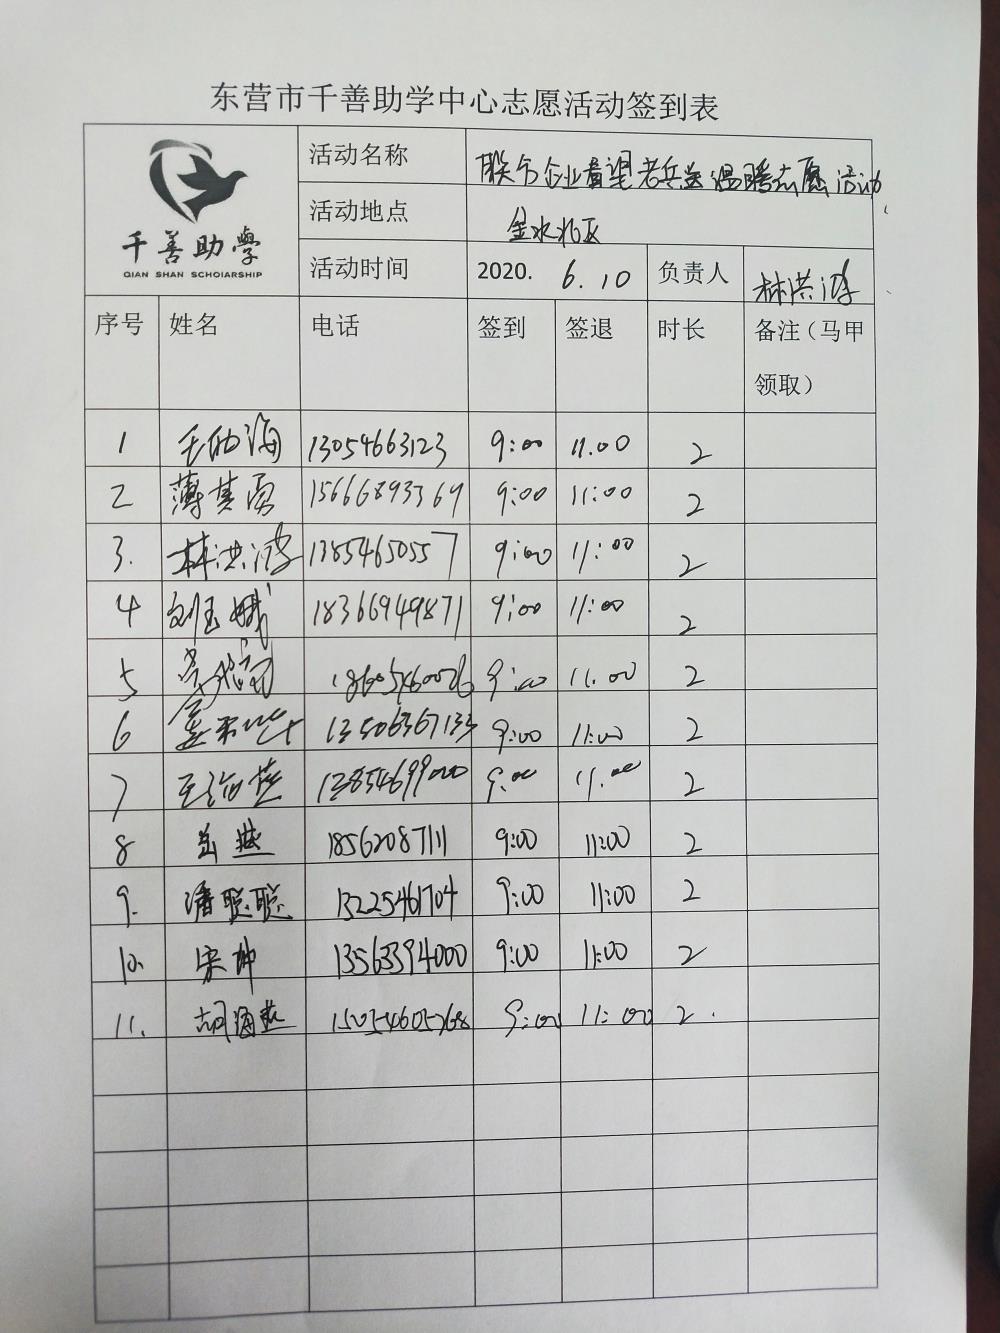 东营市千善助学中心志愿活动签到表
千善助學
QIAN SHAN SCHOlARSHIP
活动名称 联合企业看望老兵送温暖志愿活动
活动地点 金水北区
活动时间 2020. 6.10 负责人 林洪涛
序号 姓名 电话 签到 签退 时长 备注（马甲
领取）
1 海 13054663123 9:00 11.00 2
2 薄其勇 15666893369 9:00 11:00 2
3. 林洪涛 13854650557 9:00 11:00 2
4 刘玉娥 18366949871 9:00 11:00 2
5 9:00 11.00 2
6 13506367133 9:00 11:00 2
7 王海燕 13854699000 9:00 11.00 2
8 岳燕 18562087111 9:00 11:00 2
9. 潘聪聪 13225461704 9:00 11:00 2
10. 宋坤 13563394000 9:00 11:00 2
11. 胡海燕 15054605768 9:00 11:00 2.